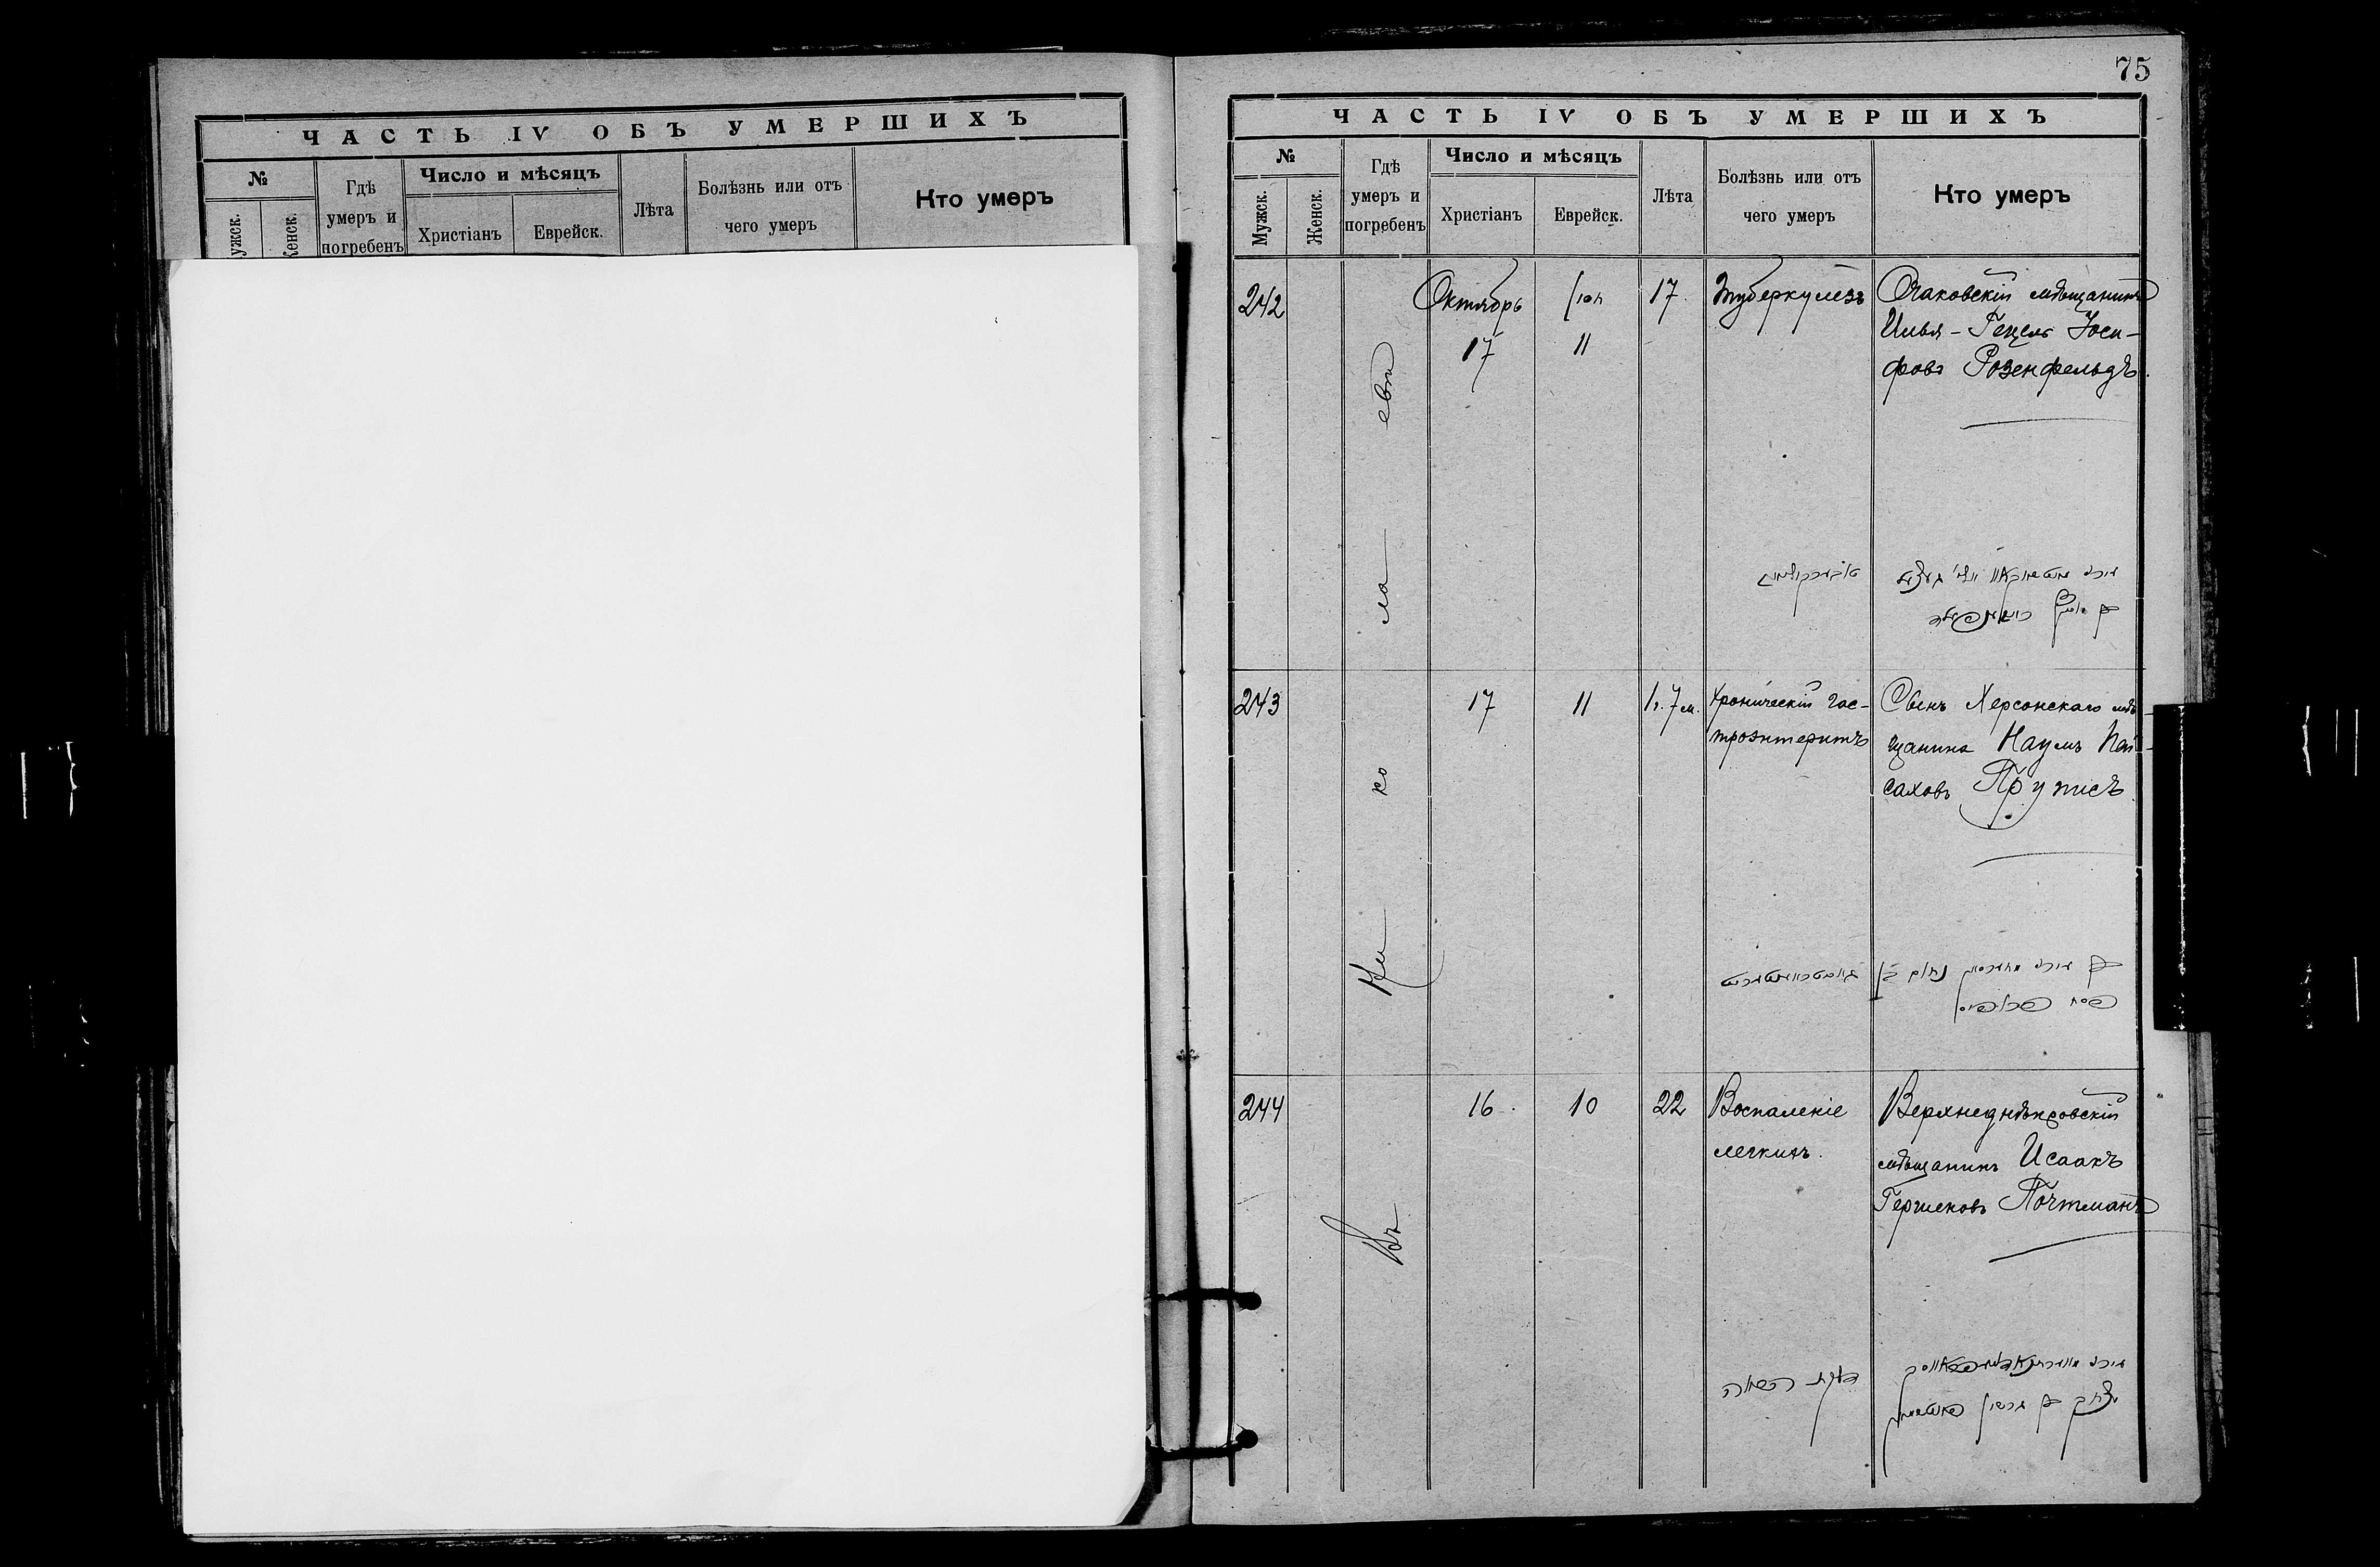 ЧАСТЬ IV ОБЪ УМЕРШИХЪ
№
ужск.
Кенск.
Гдѣ
умеръ и
погребенъ
Число и мѣсяцъ
Христіанъ
Еврейск.
Лѣта
Болѣзнь или отъ
чего умеръ
Кто умеръ
75
ЧАСТЬ IV ОБЪ УМЕРШИХЪ
№
Мужск.
Женск.
Гдѣ
умеръ и
погребенъ
Число и мѣсяцъ
Христіанъ
Еврейск.
Лѣта
Болѣзнь или отъ
чего умеръ
Кто умеръ
Въ Ни ко ла евѣ
242
Октябрь
17
11
17.
Туберкулезъ
Очаковскій мѣщанинъ
Илья - Гецель Іоси-
фовъ Розенфельдъ.
243
17
11
1 г. 7 м.
Хроническій гас-
троэнтеритъ
Сынъ Херсонскаго мѣ-
щанина Наумъ Пей-
саховъ
244
16
10
22
Воспаленіе
легкихъ.
Верхнеднѣпровскій
мѣщанинъ Исаакъ
Гершковъ Почтманъ
יצחק בן גרשון